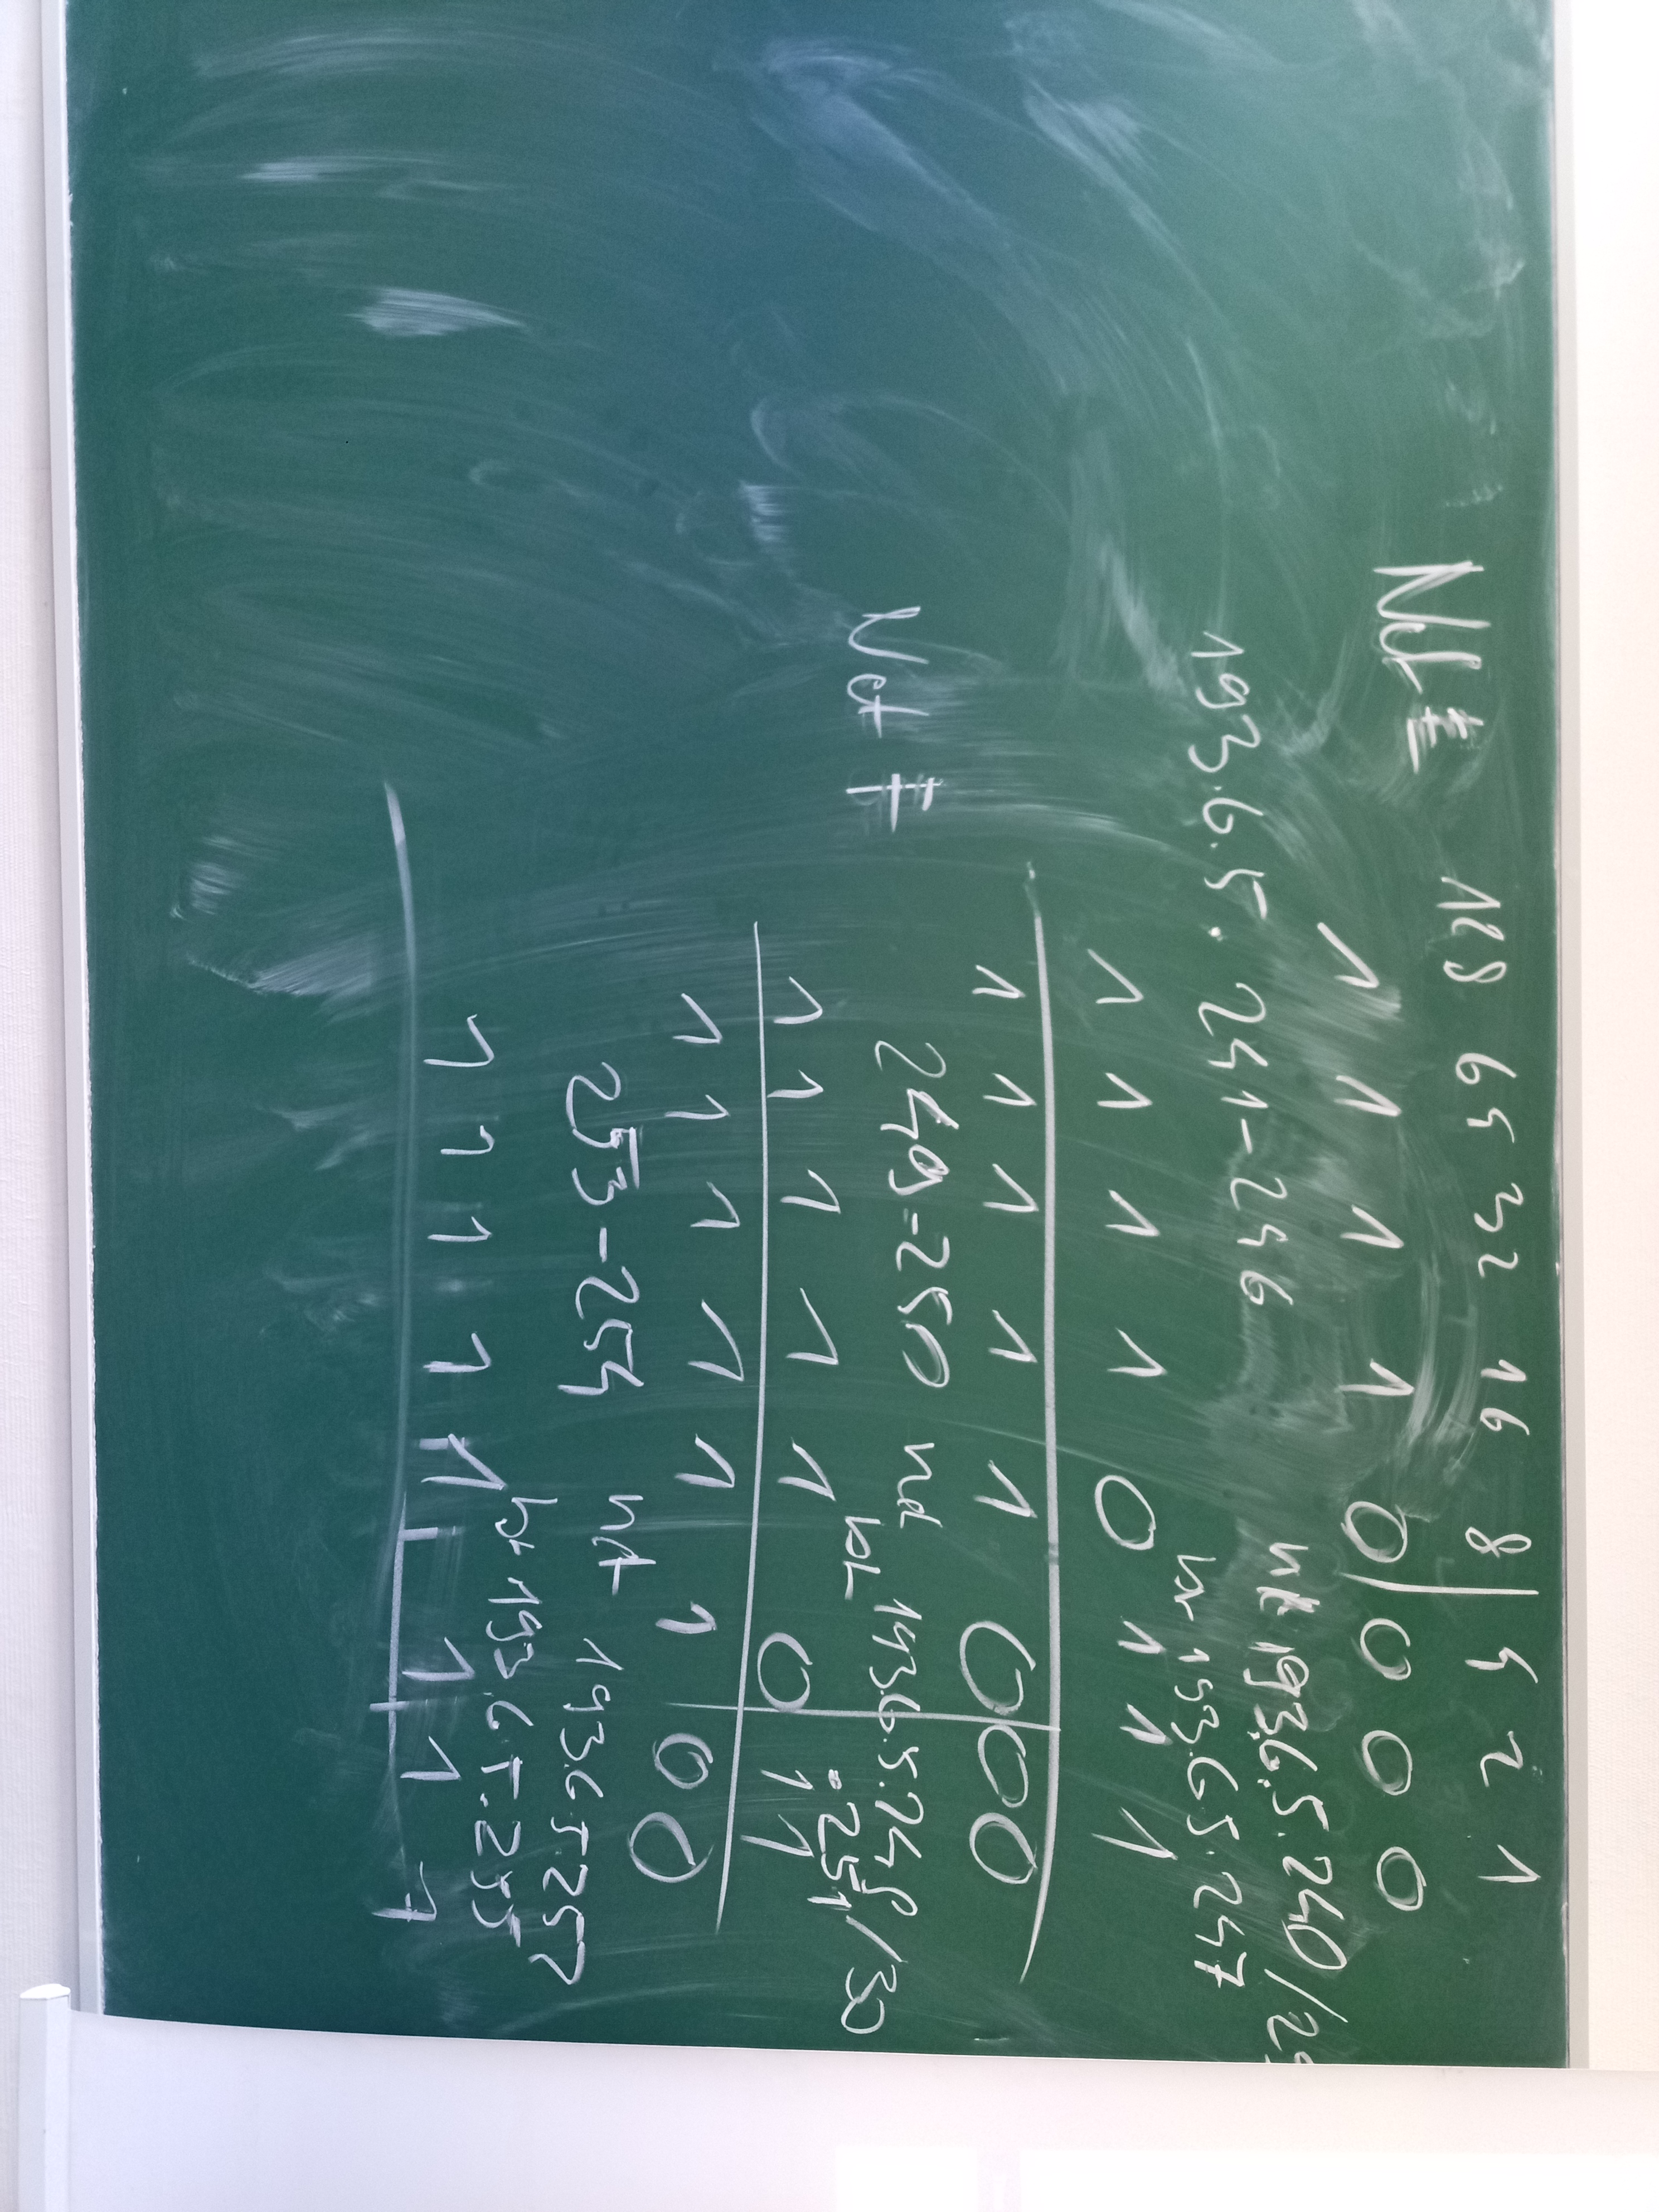 128 64 32 16 8 | 4 2 1
Net E
1 1 1 1 0 | 0 0 0
net 193.6.5.240/29
193.6.5.241-246
bc 193.6.5.247
1 1 1 1 0 1 1 1
1 1 1 1 1 0 0 0
249-250 net 193.6.5.248/30
Net F
bc .251
1 1 1 1 1 0 1 1
1 1 1 1 1 1 0 0
253-254 net 193.6.5.252
bc 193.6.5.255
1 1 1 1 1 1 1 1